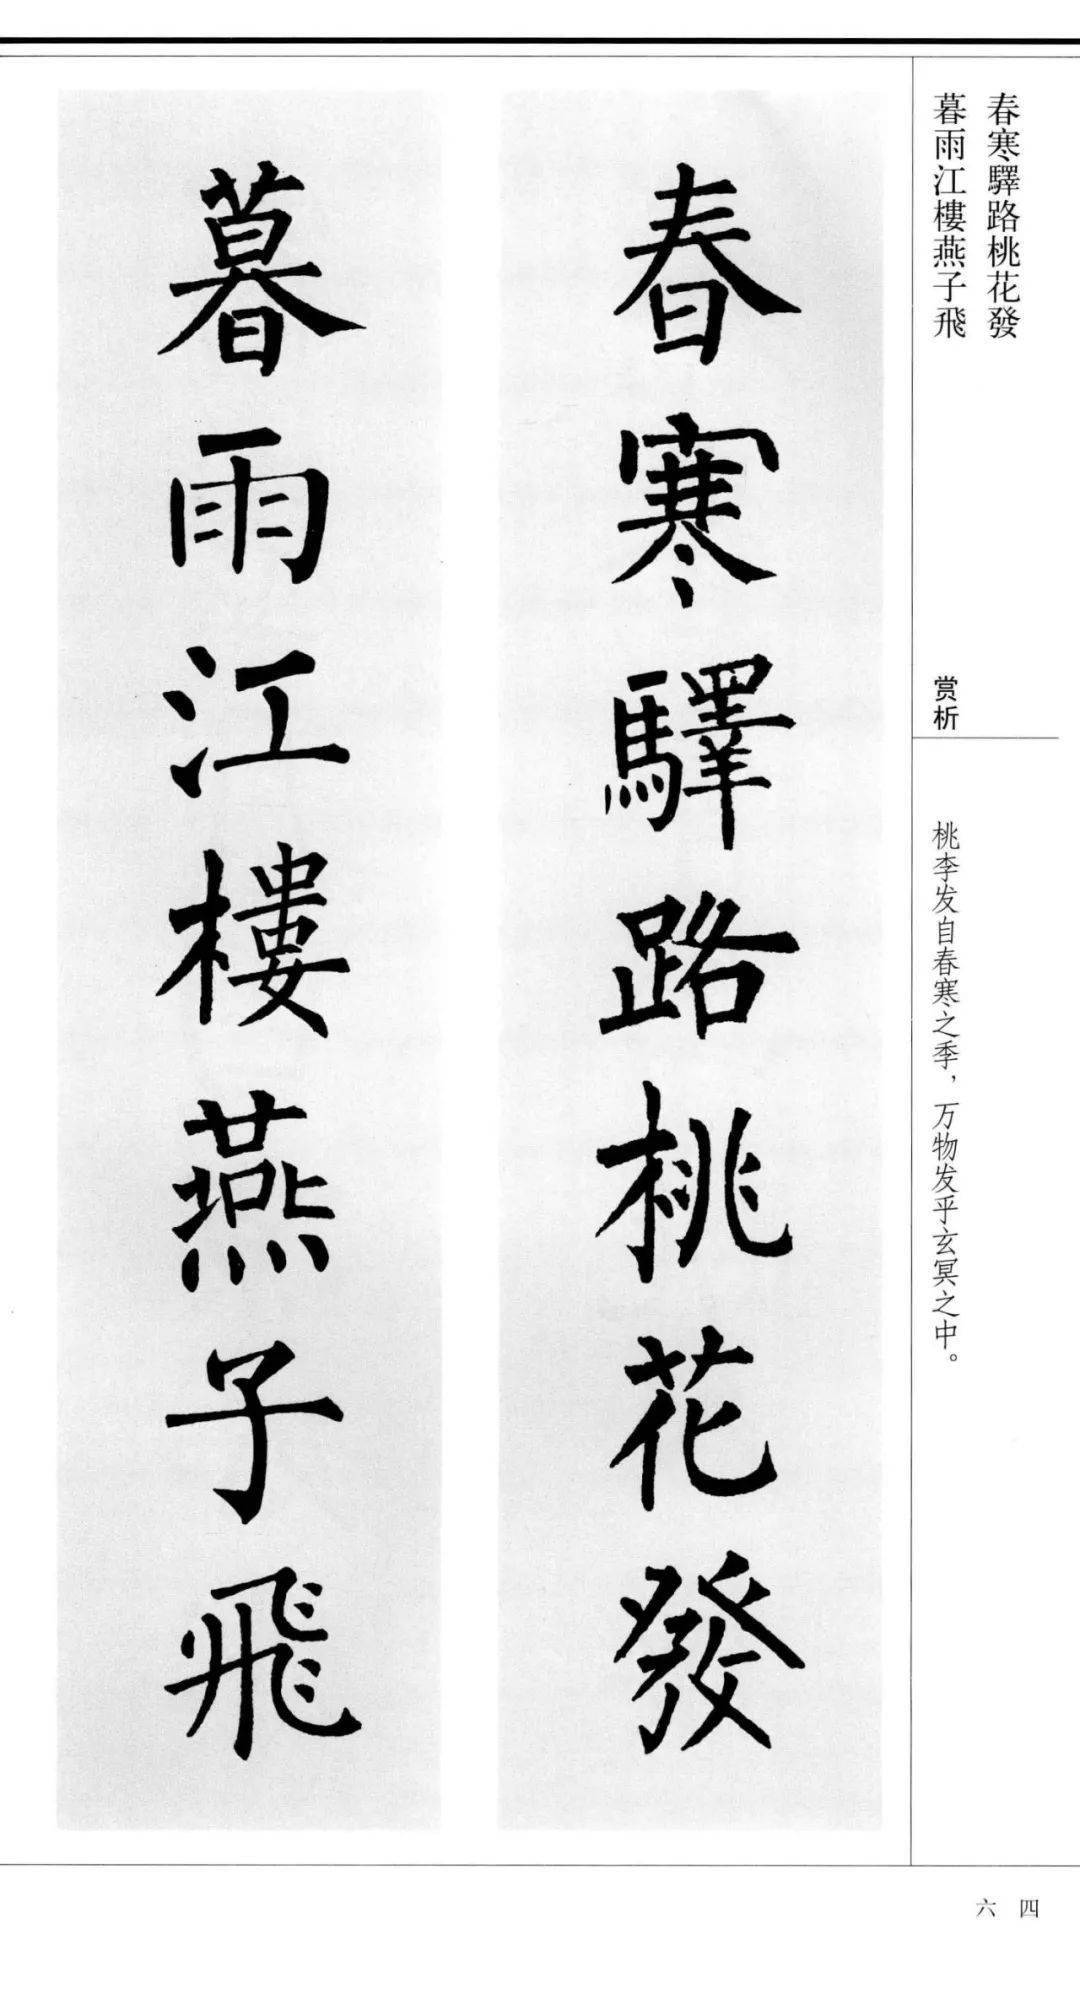 春寒驛路桃花發
暮雨江樓燕子飛
赏析
桃李发自春寒之季，万物发乎玄冥之中。
春寒驛路桃花發
暮雨江樓燕子飛
六 四